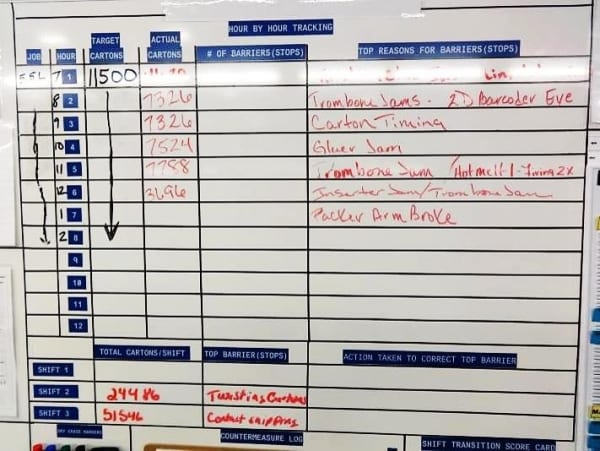 HOUR BY HOUR TRACKING
JOB HOUR TARGET CARTONS ACTUAL CARTONS # OF BARRIERS(STOPS) TOP REASONS FOR BARRIERS(STOPS)
7 1 11500
8 2 7326 Trombone Jams. 2D Barcoder Eye
9 3 7326 Carton Timing
10 4 7524 Gluer Jam
11 5 7788 Trombone Jam /Hotmelt-1-Firing 2x
12 6 3696 Inserter Jam/Trombone Jam
1 7 Packer Arm Broke
2 8
9
10
11
12
TOTAL CARTONS/SHIFT TOP BARRIER(STOPS) ACTION TAKEN TO CORRECT TOP BARRIER
SHIFT 1
SHIFT 2 24486 Twisting Cartons
SHIFT 3 51546
DRY ERASE MARKERS COUNTERMEASURE LOG SHIFT TRANSITION SCORE CARD